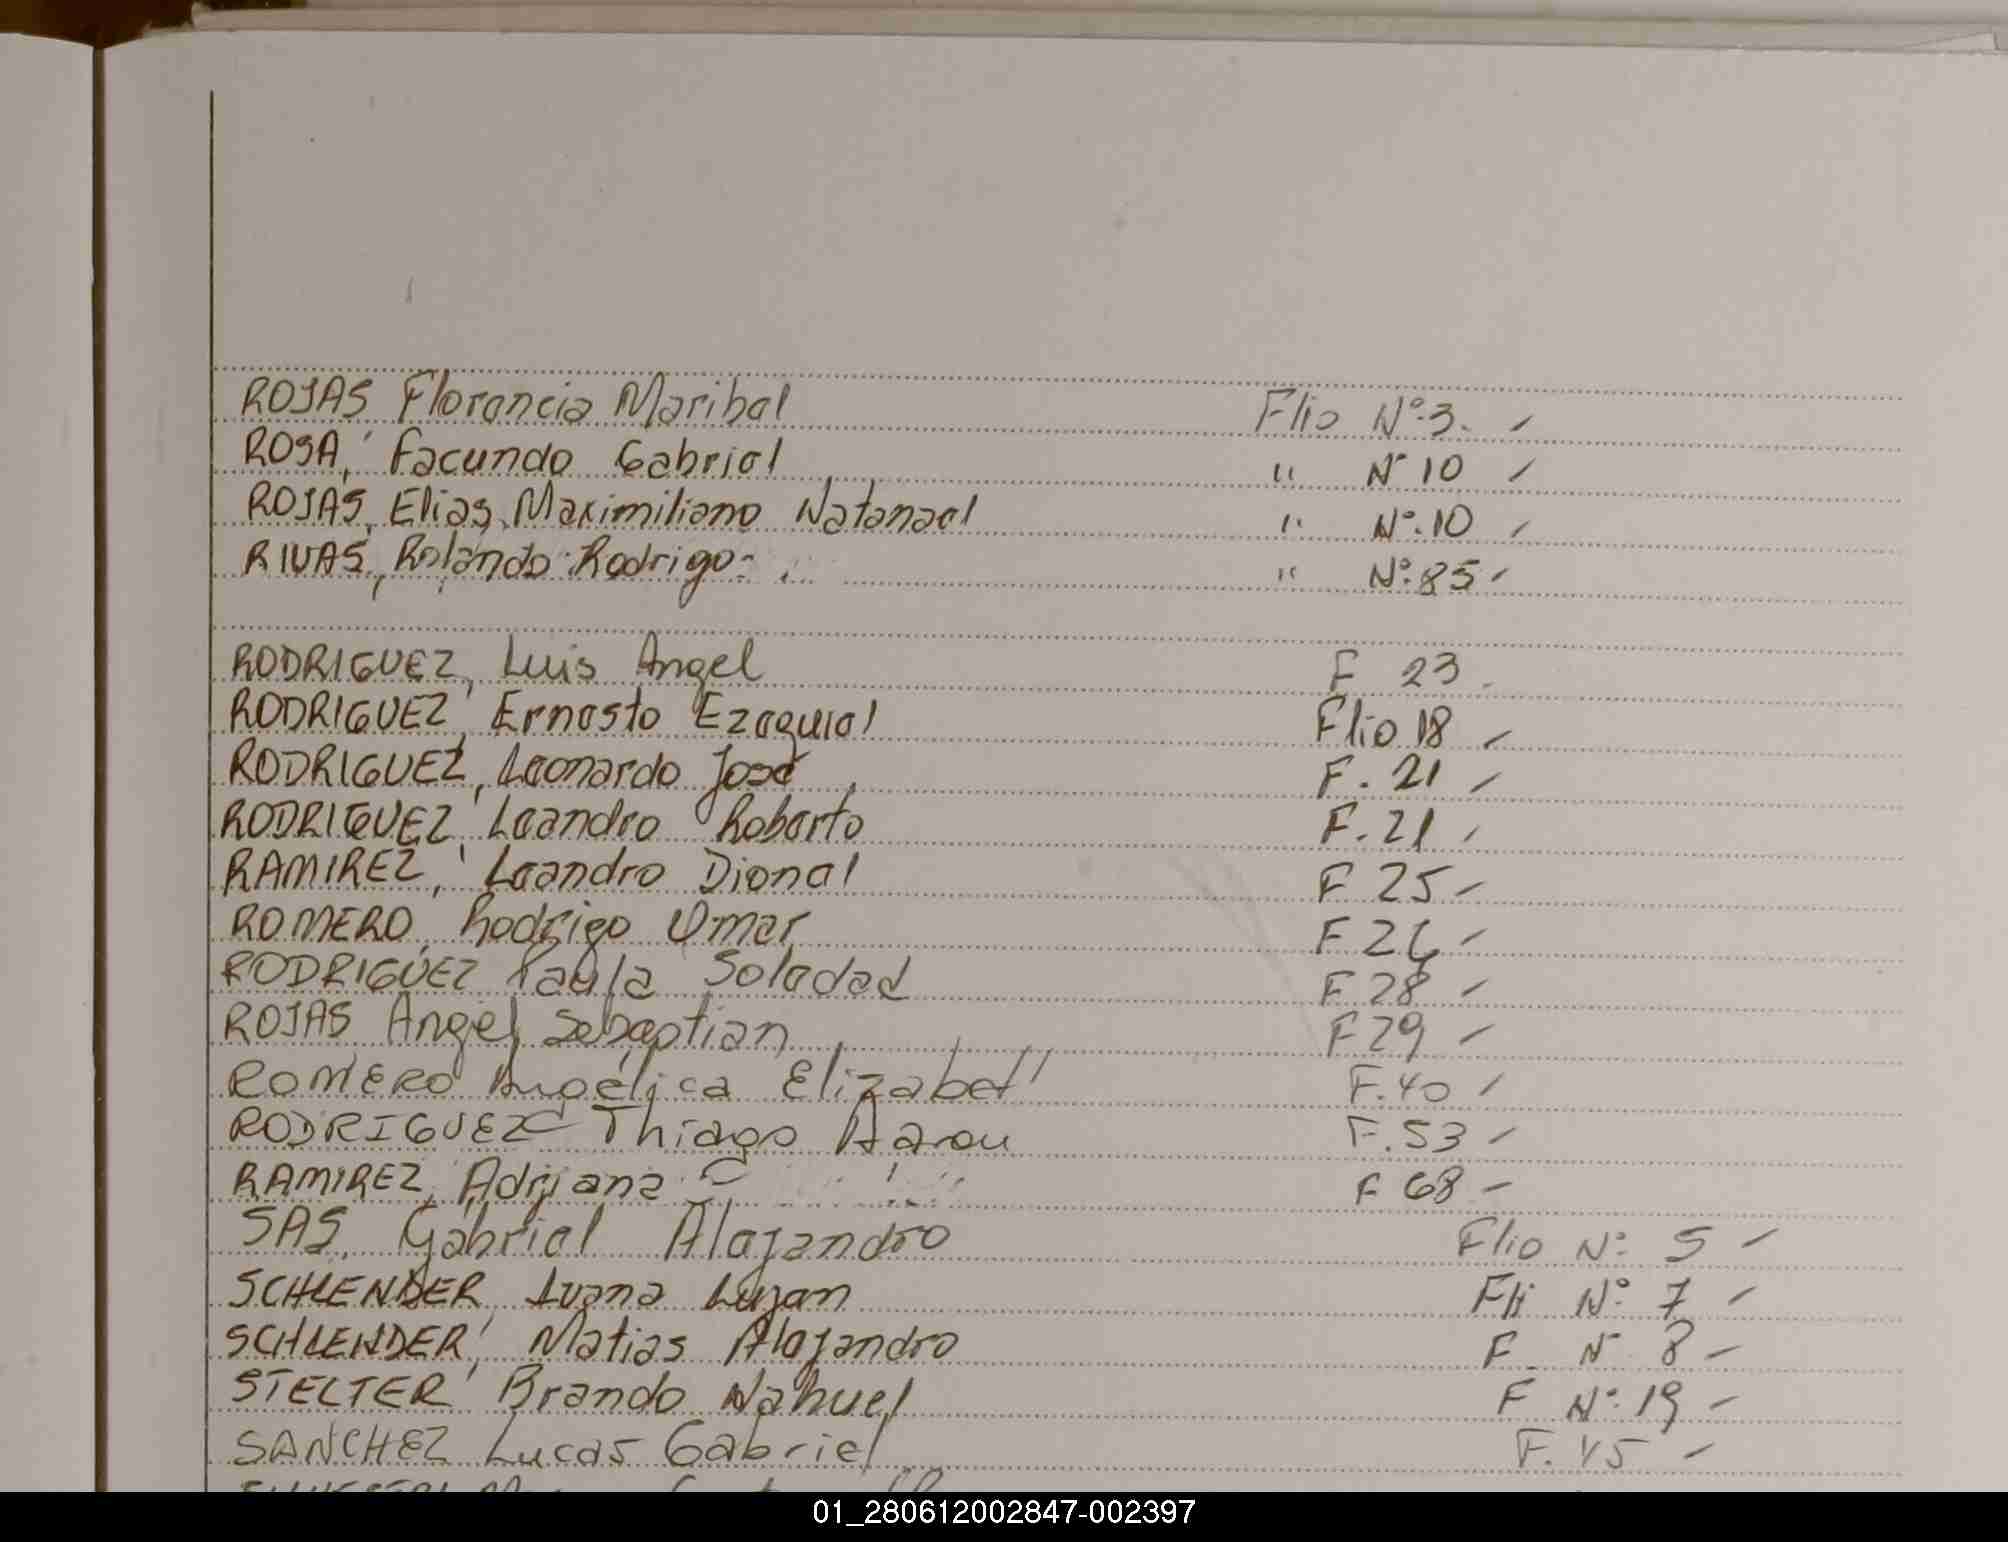 ROJAS Florencia Maribel Flio Nº 3.
ROSA, Facundo Gabriel " Nº 10
ROJAS, Elias Maximiliano Natanael " Nº 10
RIVAS, Rolando Rodrigo " Nº 85
RODRIGUEZ, Luis Angel F 23
RODRIGUEZ, Ernesto Ezequiel Flio 18
RODRIGUEZ, Leonardo José F. 21
RODRIGUEZ, Leandro Roberto F. 21
RAMIREZ, Leandro Dionel F 25
ROMERO, Rodrigo Omar F 26
RODRIGUEZ Paula Soledad F 28
ROJAS Angel Sebastian F 29
ROMERO Angelica Elizabet F. 40
RODRIGUEZ Thiago Aaron F. 53
RAMIREZ, Adriana F 68
SAS, Gabriel Alejandro Flio Nº 5
SCHLENDER, Luana Lujan Fli Nº 7
SCHLENDER, Matias Alejandro F Nº 8
STELTER, Brando Nahuel F Nº 19
SANCHEZ Lucas Gabriel F. 45
01_280612002847-002397